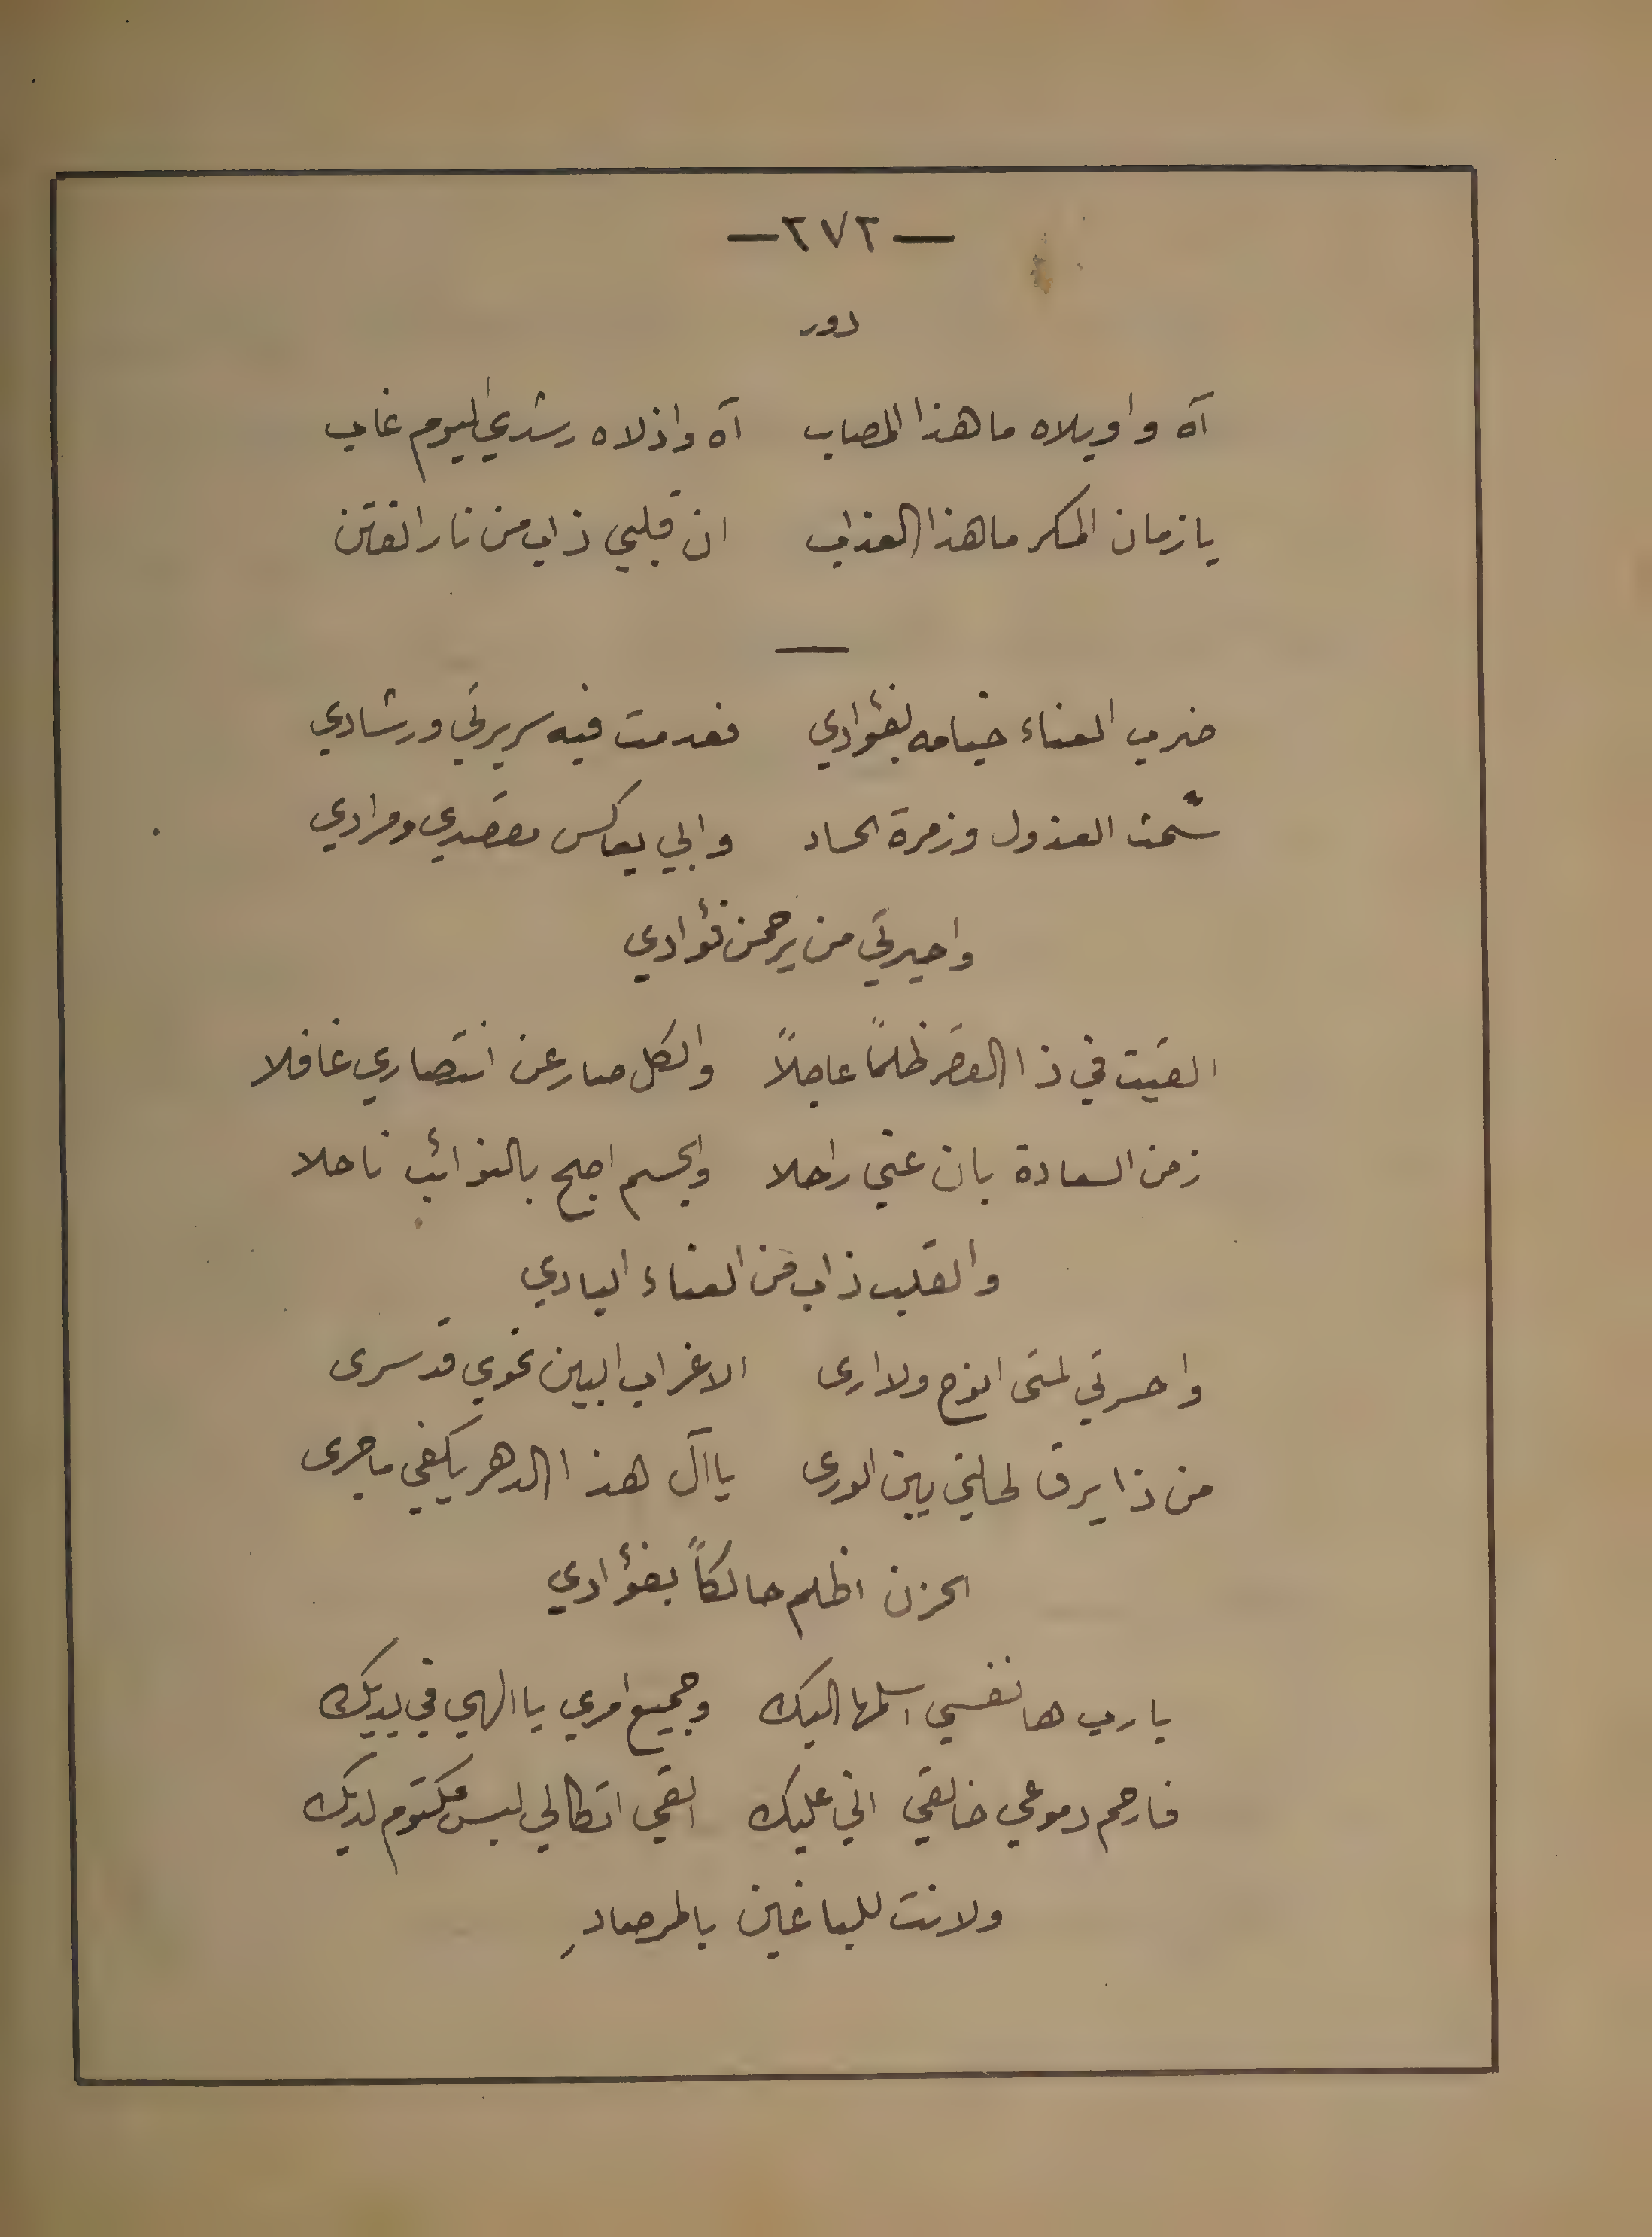 — ٢٧٢ —
دور
آه واويلاه ما هذا المصاب    آه واذلاه رشدي اليوم غاب
يا زمان المكر ما هذا العذاب    ان قلبي ذاب من نار الفتن
ضرب العناء خيامه بفؤادي    فعدمت فيه سريرتي ورشادي
شمت العذول وزمرة الحساد    وابي يعاكس مقصدي ومرادي
واحيرتي من يرحمن فؤادي
القيت في ذا القصر ظلماً عاجلاً    والكل صار عن انتصاري غافلا
زمن السعادة بان عني راحلا    والجسم اصبح بالنوائب ناحلا
والقلب ذاب من العناء البادي
واحسرتي لمتى انوح ولا ارى    الا غراب البين نحوي قد سرى
من ذا يرق لحالتي بين الورى    يا آل هذا الدهر يكفي ما جرى
الحزن اظلم حالكاً بفؤادي
يا رب ها نفسي اسلمها اليك    وجميع امري يا الهي في يديك
فارحم دموعي خالقي اني عليك    القي اتكالي ليس مكتوم لديك
ولانت للباغين بالمرصادِ